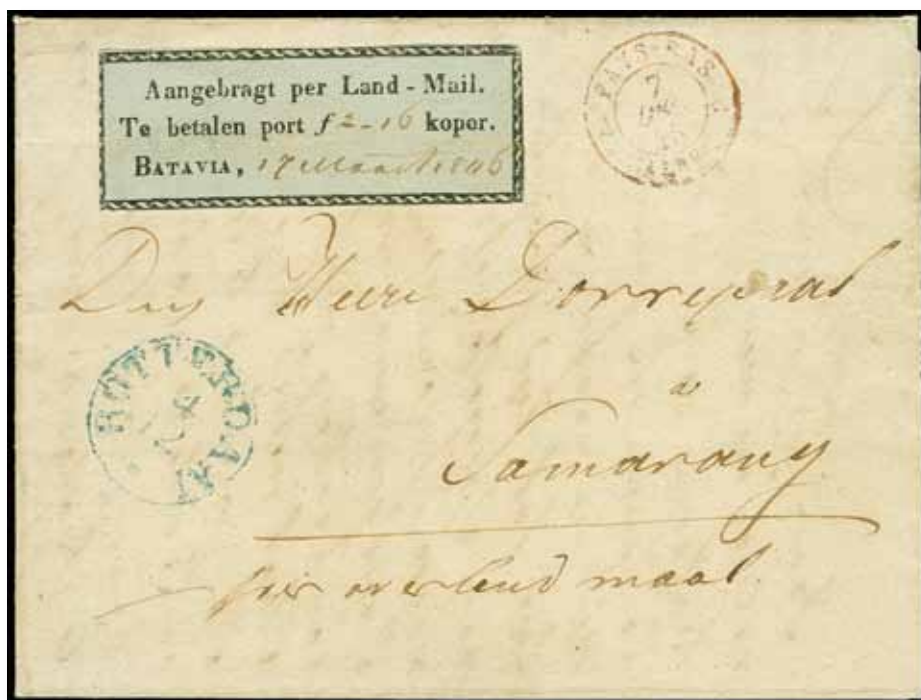 Aangebragt per Land-Mail.
Te betalen port f 2-16 koper.
BATAVIA, 17 Maart 1846
PAYS-BAS
7
Heere
ROTTERDAM
Samarang
per overland maal